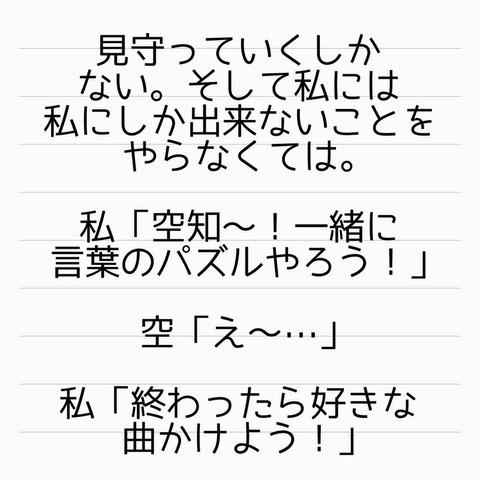 見守っていくしか
ない。そして私には
私にしか出来ないことを
やらなくては。
私「空知〜！一緒に
言葉のパズルやろう！」
空「え〜…」
私「終わったら好きな
曲かけよう！」